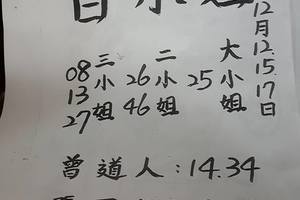 12月12.15.17日
大小姐
25
二小姐
26
46
三小姐
08
13
27
曾道人:14.34